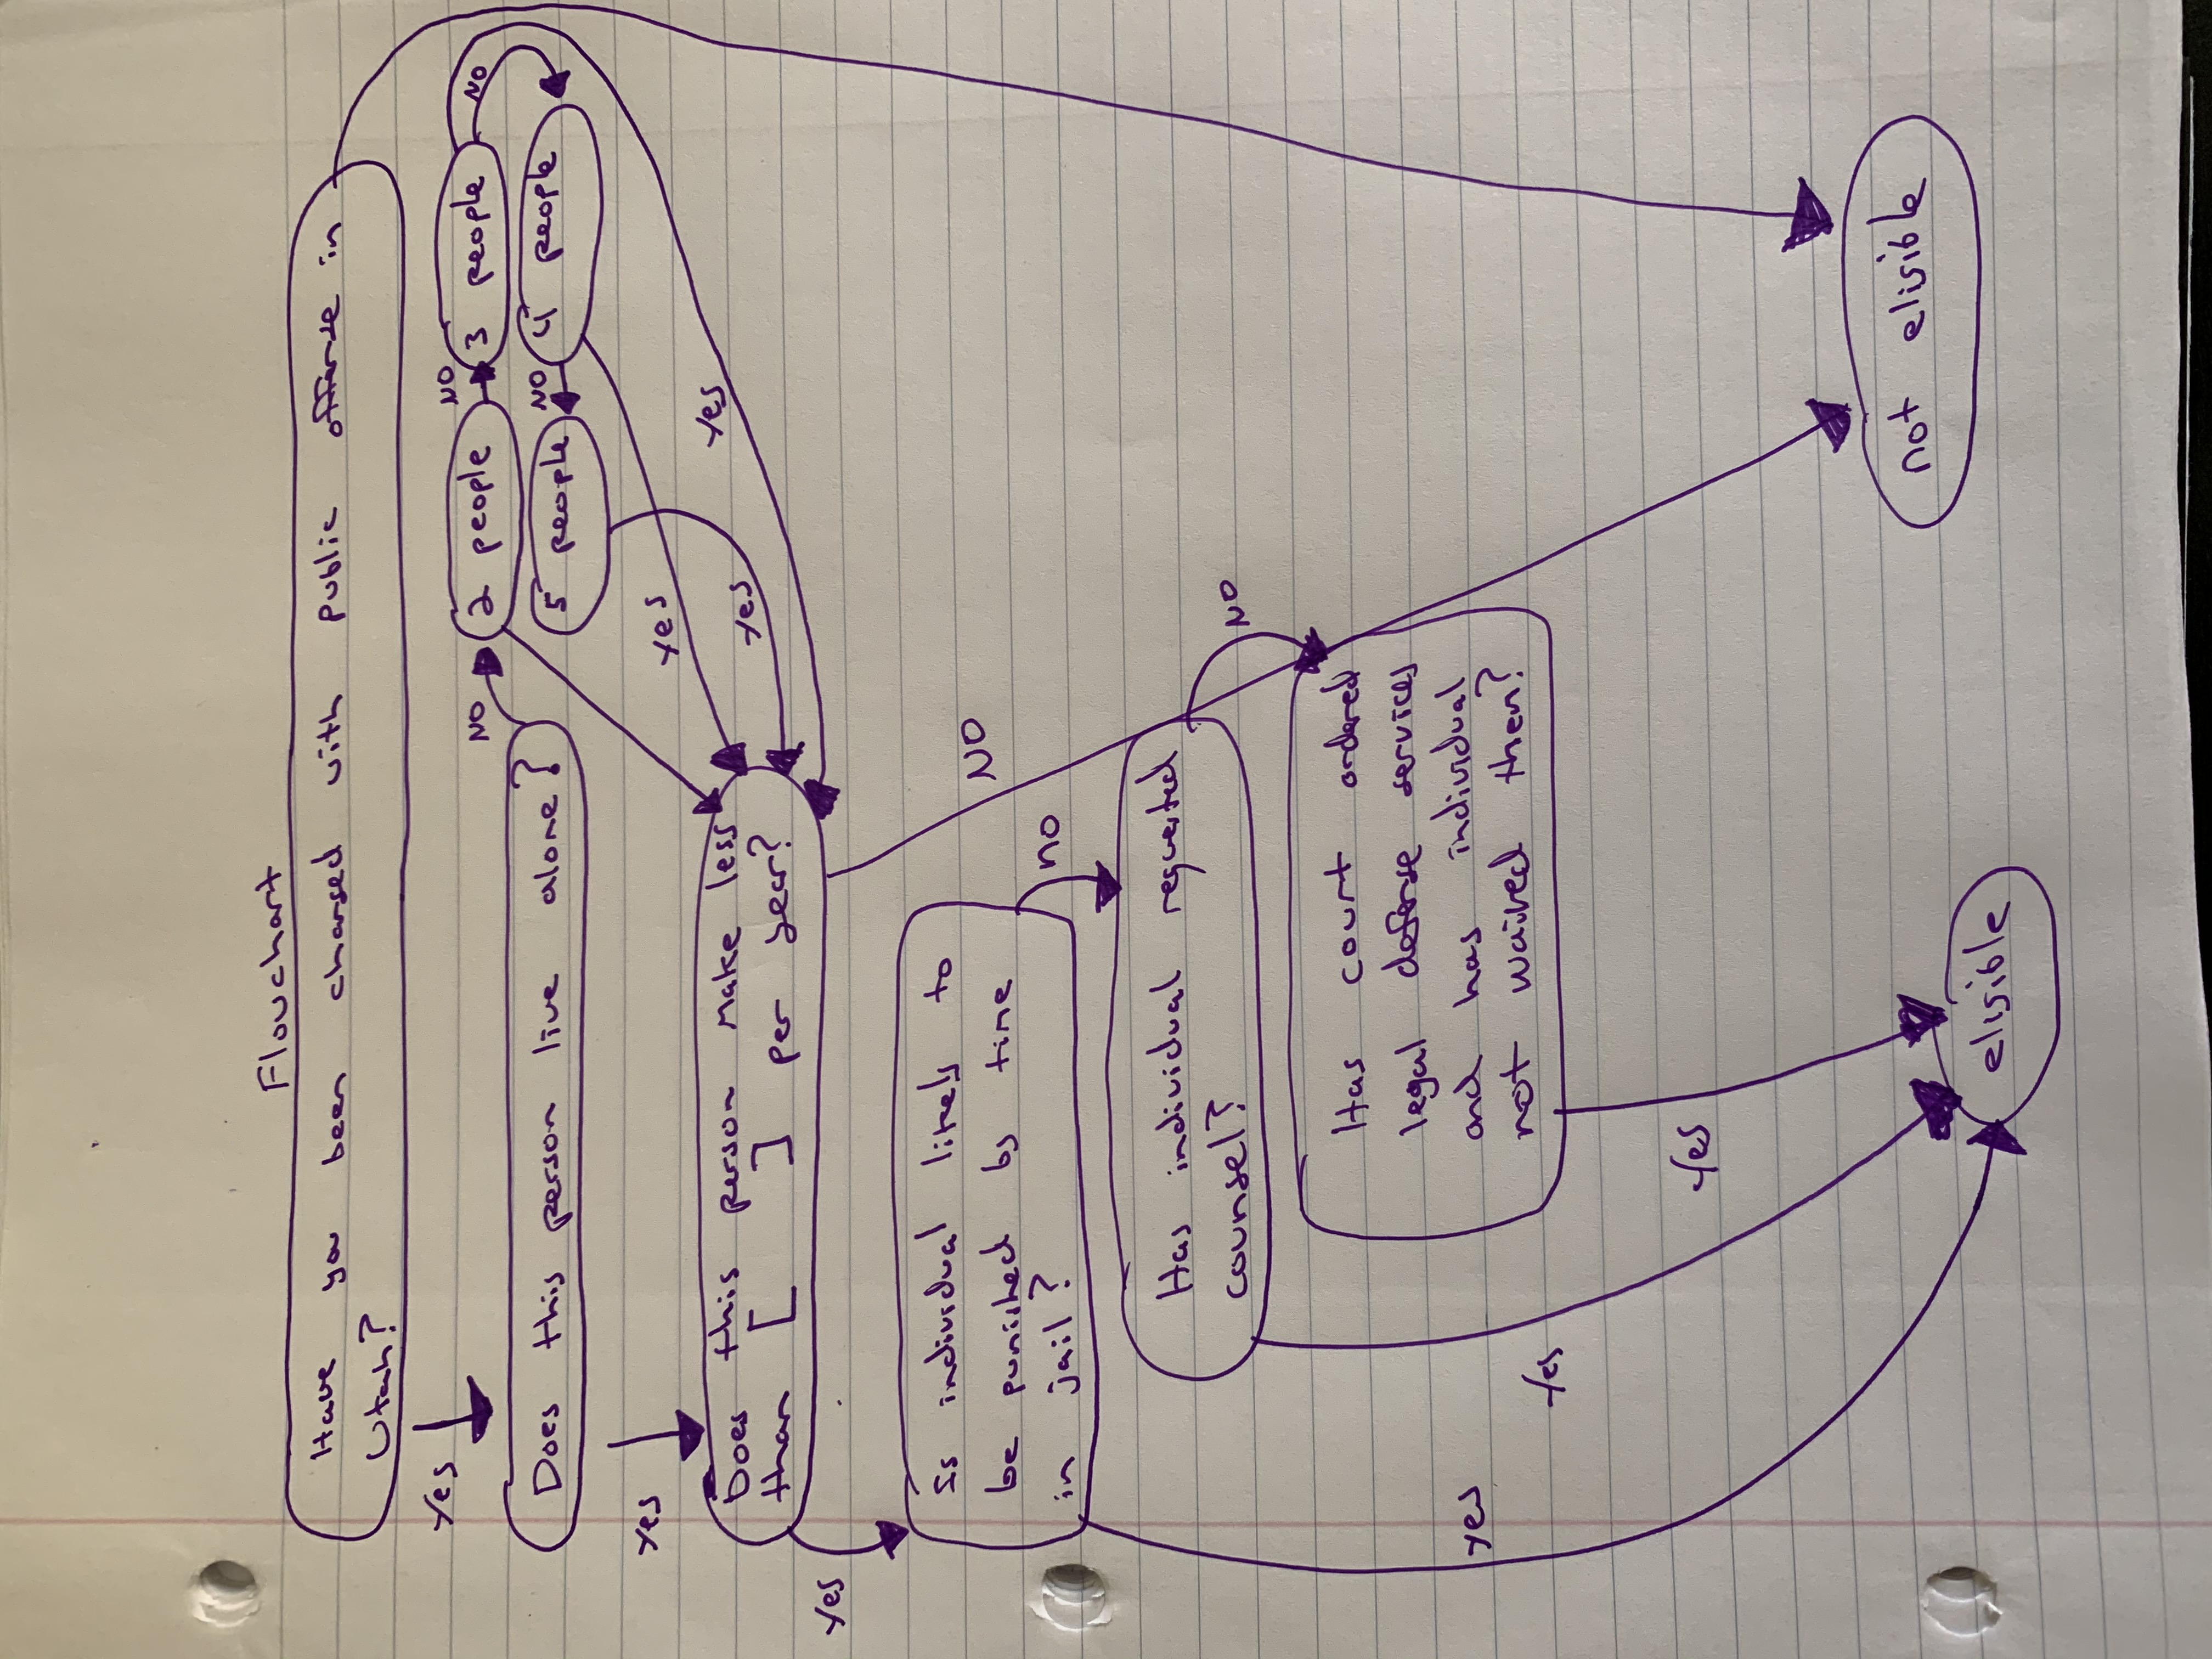 Flowchart
Have you been charged with public offense in
Utah?
Yes
NO
2 people
NO
3 people
NO
Does this person live alone?
5 people
NO
4 people
Yes
yes
Does this person make less
than [ ] per year?
yes
yes
Yes
Is individual likely to
be punished by time
in jail?
NO
no
Has individual requested
counsel?
NO
Has court ordered
legal defense services
and has individual
not waived then?
yes
Yes
Yes
not eligible
eligible